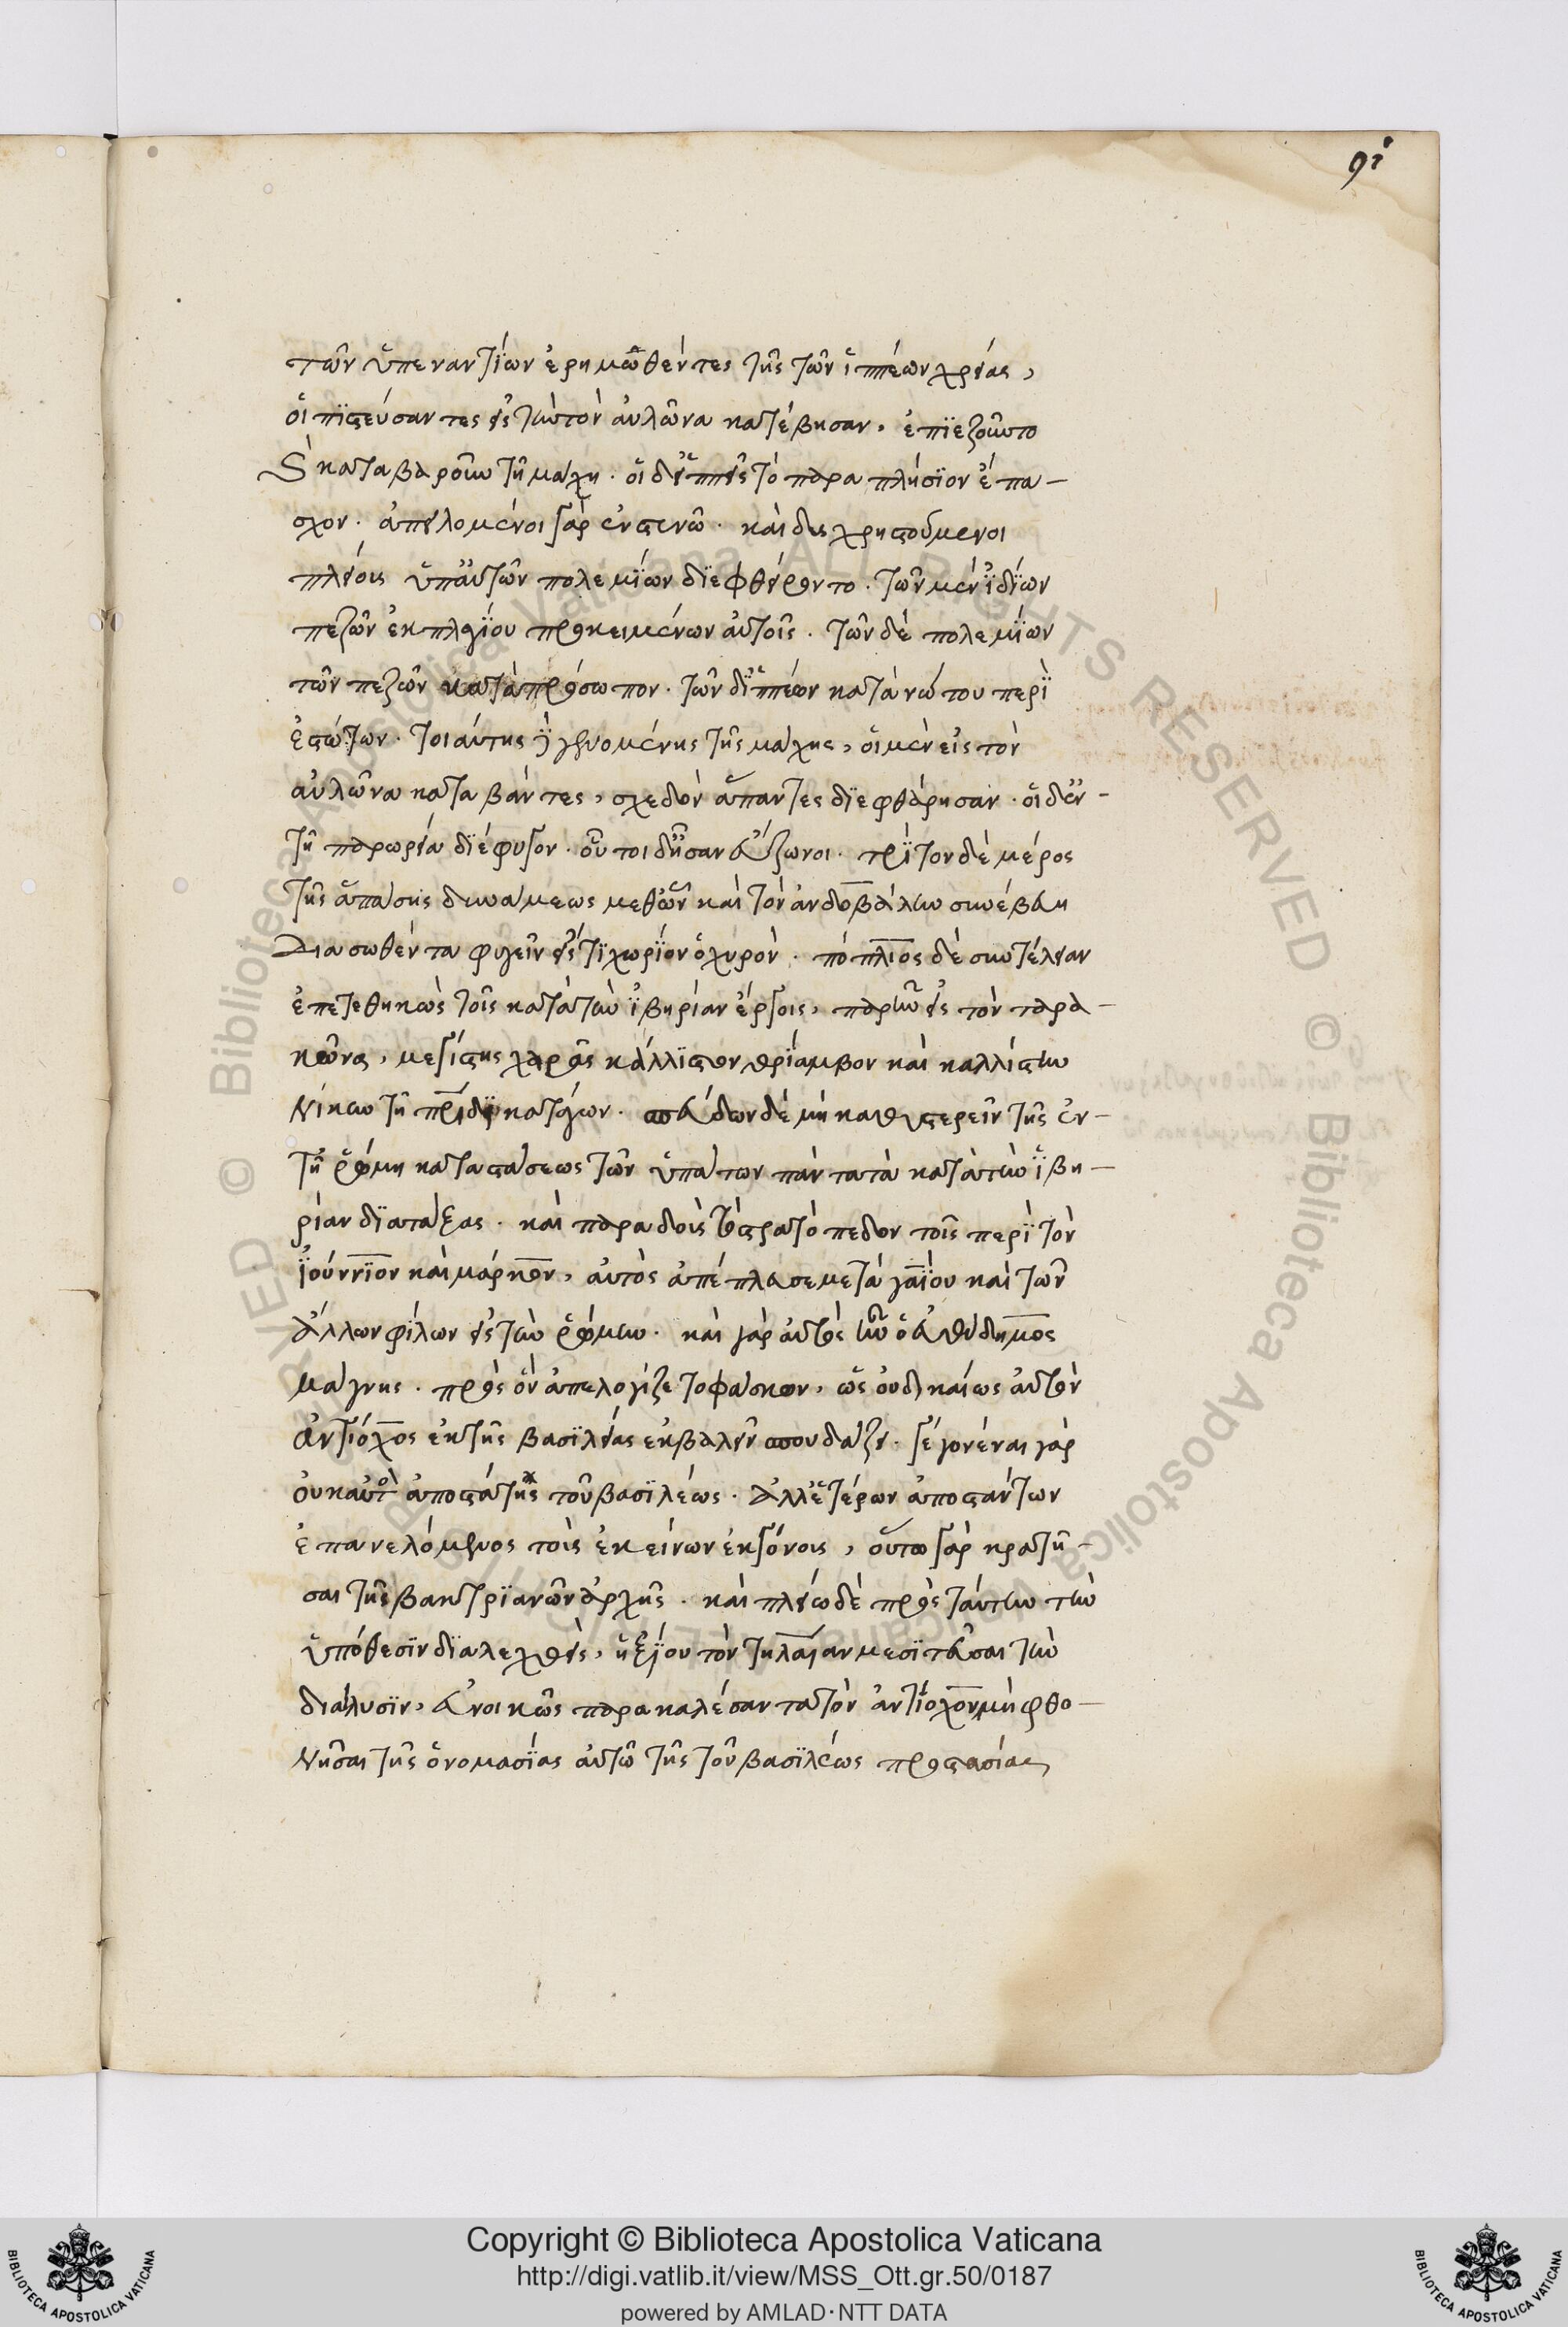 91
τῶν ὑπεναντίων ἐρημωθέντες τῆς τῶν ἱππέων χρείας,
οἱ πιστεύσαντες εἰς τὴν τὸν αὐλῶνα κατέβησαν, ἐπιεζοῦντο
καὶ κατεβαροῦντο τῇ μάχῃ. οἱ δ' ἱππεῖς τὸ παραπλήσιον ἔπα-
σχον. ἀπειλημένοι γὰρ ἐν στενῷ. καὶ δυσχρηστούμενοι
πλείους ὑπ' αὐτῶν πολεμίων διεφθείροντο. τῶν μὲν ἰδίων
πεζῶν ἐκ πλαγίου προκειμένων αὐτοῖς. τῶν δὲ πολεμίων
τῶν πεζῶν κατὰ πρόσωπον. τῶν δ' ἱππέων κατὰ νώτου περὶ
ἑστώτων. τοιαύτης δὲ γενομένης τῆς μάχης, οἱ μὲν εἰς τὸν
αὐλῶνα καταβάντες, σχεδὸν ἅπαντες διεφθάρησαν. οἱ δ' ἐν
τῇ παρωρείᾳ διέφυγον. οὗτοι δ' ἦσαν εὔζωνοι. τρίτον δὲ μέρος
τῆς ἁπάσης δυνάμεως μεθ' ὧν καὶ τὸν ἀνδοβάλην συνέβη
διασωθέντα φυγεῖν εἴς τι χωρίον ὀχυρόν. πόπλιος δὲ συντέλειαν
ἐπιτεθηκὼς τοῖς κατὰ τὴν ἰβηρίαν ἔργοις, παρῆν εἰς τὸν ταρα-
κῶνα, μεγίστης χαρᾶς κάλλιστον θρίαμβον καὶ καλλίστην
νίκην τῇ πατρίδι κατάγων. σπεύδων δὲ μὴ καθυστερεῖν τῆς ἐν
τῇ ῥώμῃ καταστάσεως τῶν ὑπάτων πάντα τὰ κατὰ τὴν ἰβη-
ρίαν διατάξας. καὶ παραδοὺς τὸ στρατόπεδον τοῖς περὶ τὸν
ἰούννιον καὶ μάρκον, αὐτὸς ἀπέπλευσε μετὰ γαΐου καὶ τῶν
ἄλλων φίλων εἰς τὴν ῥώμην. καὶ γὰρ αὐτὸς ἦν ὁ εὐθύδημος
μάγνης. πρὸς ὃν ἀπελογίζετο φάσκων, ὡς οὐ δικαίως αὐτὸν
ἀντίοχος ἐκ τῆς βασιλείας ἐκβαλεῖν σπουδάζει. γεγονέναι γὰρ
οὐκ αὐτὸ ἀποστάτης τοῦ βασιλέως. ἀλλ' ἑτέρων ἀποστάντων
ἐπανελόμενος τοὺς ἐκείνων ἐκγόνους, οὕτω γὰρ κρατῆ-
σαι τῆς βακτριανῶν ἀρχῆς. καὶ πλείω δὲ πρὸς ταύτην τὴν
ὑπόθεσιν διαλεχθείς, ἠξίου τὸν τηλέαν μεσιτεῦσαι τὴν
διάλυσιν, εὐνοικῶς παρακαλέσαντα τὸν ἀντίοχον μὴ φθο-
νῆσαι τῆς ὀνομασίας αὐτῷ τῆς τοῦ βασιλέως προστασίας
Copyright © Biblioteca Apostolica Vaticana
http://digi.vatlib.it/view/MSS_Ott.gr.50/0187
powered by AMLAD·NTT DATA